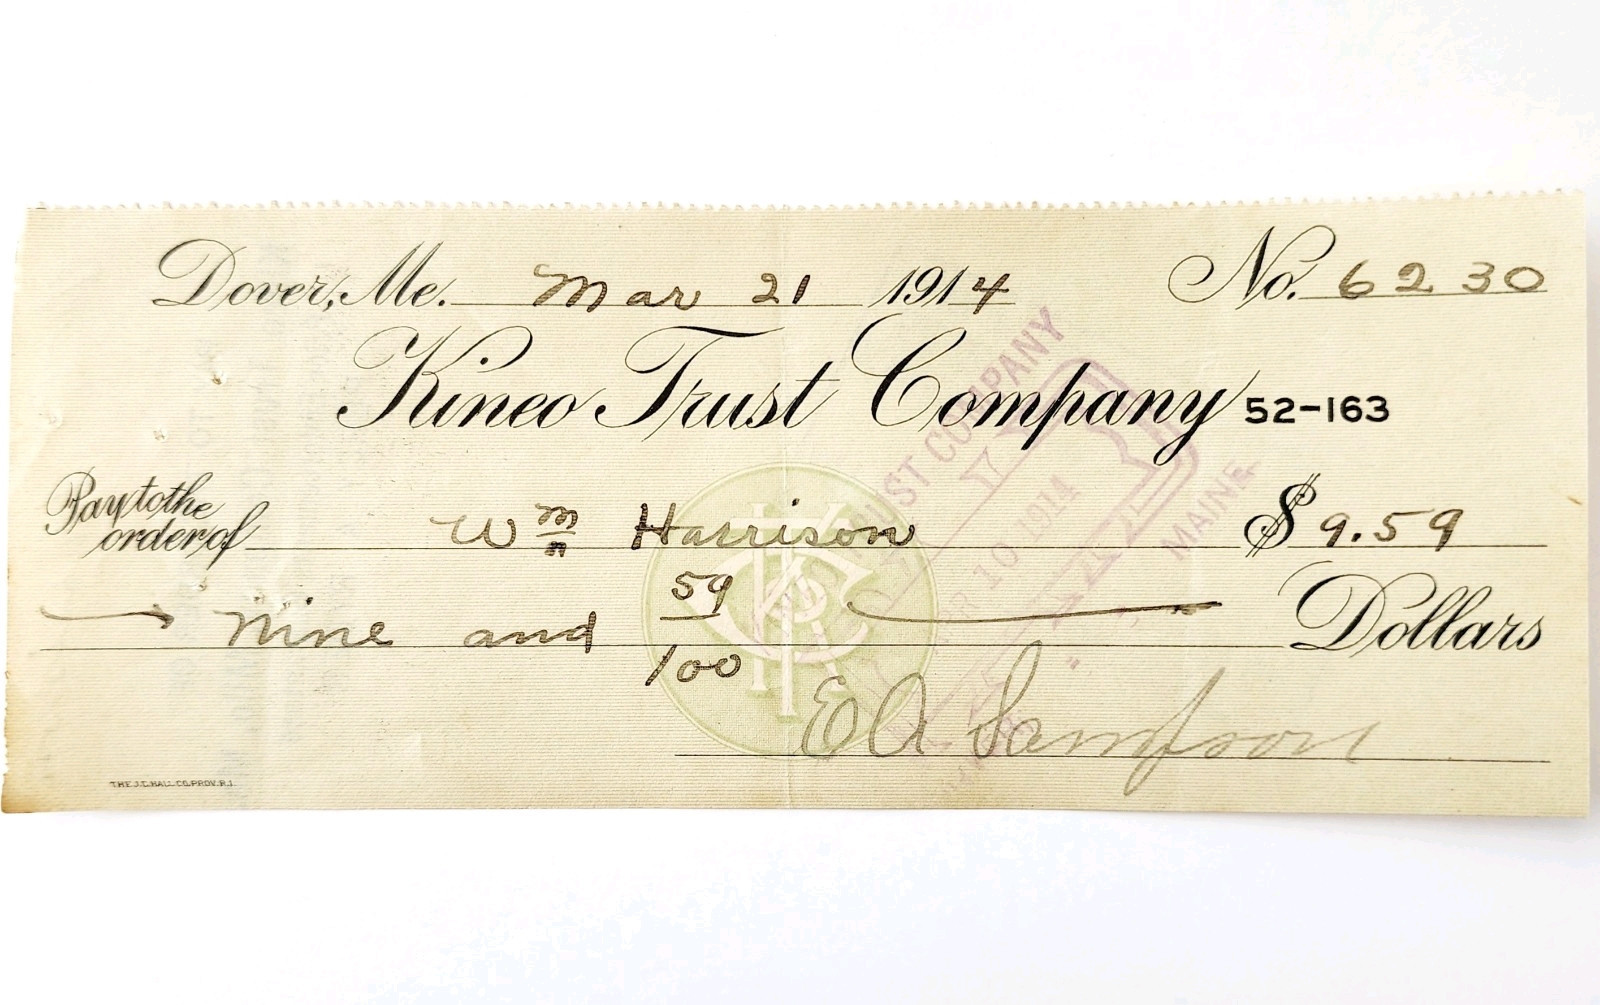 Dover, Me. Mar 21 1914 No. 6230
Kineo Trust Company 52-163
Pay to the
order of Wm Harrison $ 9.59
Nine and 59/100 Dollars
E A Sampson
THE J.C. HALL CO. PROV. R.I.
TRUST COMPANY
10 1914
MAINE